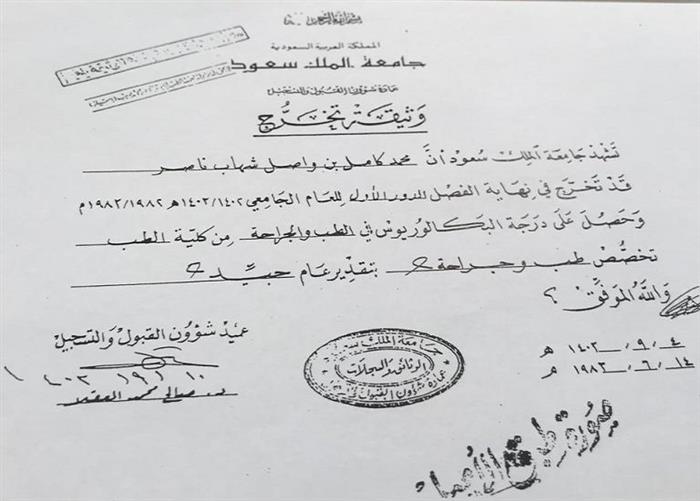 المملكة العربية السعودية
جامعة الملك سعود
عمادة شؤون القبول والتسجيل
وثيقة تخرج
تشهد جامعة الملك سعود أنَّ محمد كامل بن واصل شهاب ناصر
قد تخرّج في نهاية الفصل للدور الأول للعام الجامعي ١٤٠٢/١٤٠٣هـ ١٩٨٢/١٩٨٣م
وحصل على درجة البكالوريوس في الطب والجراحة من كلية الطب
تخصّص طب وجراحة بتقدير عام جيد
والله الموفق ؟
عميد شؤون القبول والتسجيل
د. صالح محمد
جامعة الملك سعود
الوثائق والسجلات
عمادة شؤون القبول
١٤٠٣ / ٩ / ٤ هـ
١٩٨٣ / ٦ / ١٤ م
صورة طبق الأصل